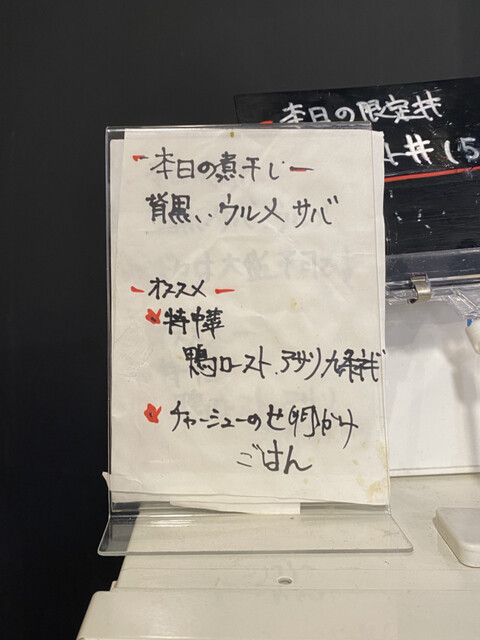 本日の限定丼
ー本日の煮干しー
背黒い ウルメ サバ
ーオススメー
特中華
鴨ロースト.アサリ 九条ネギ
チャーシューのせ卵かけ
ごはん